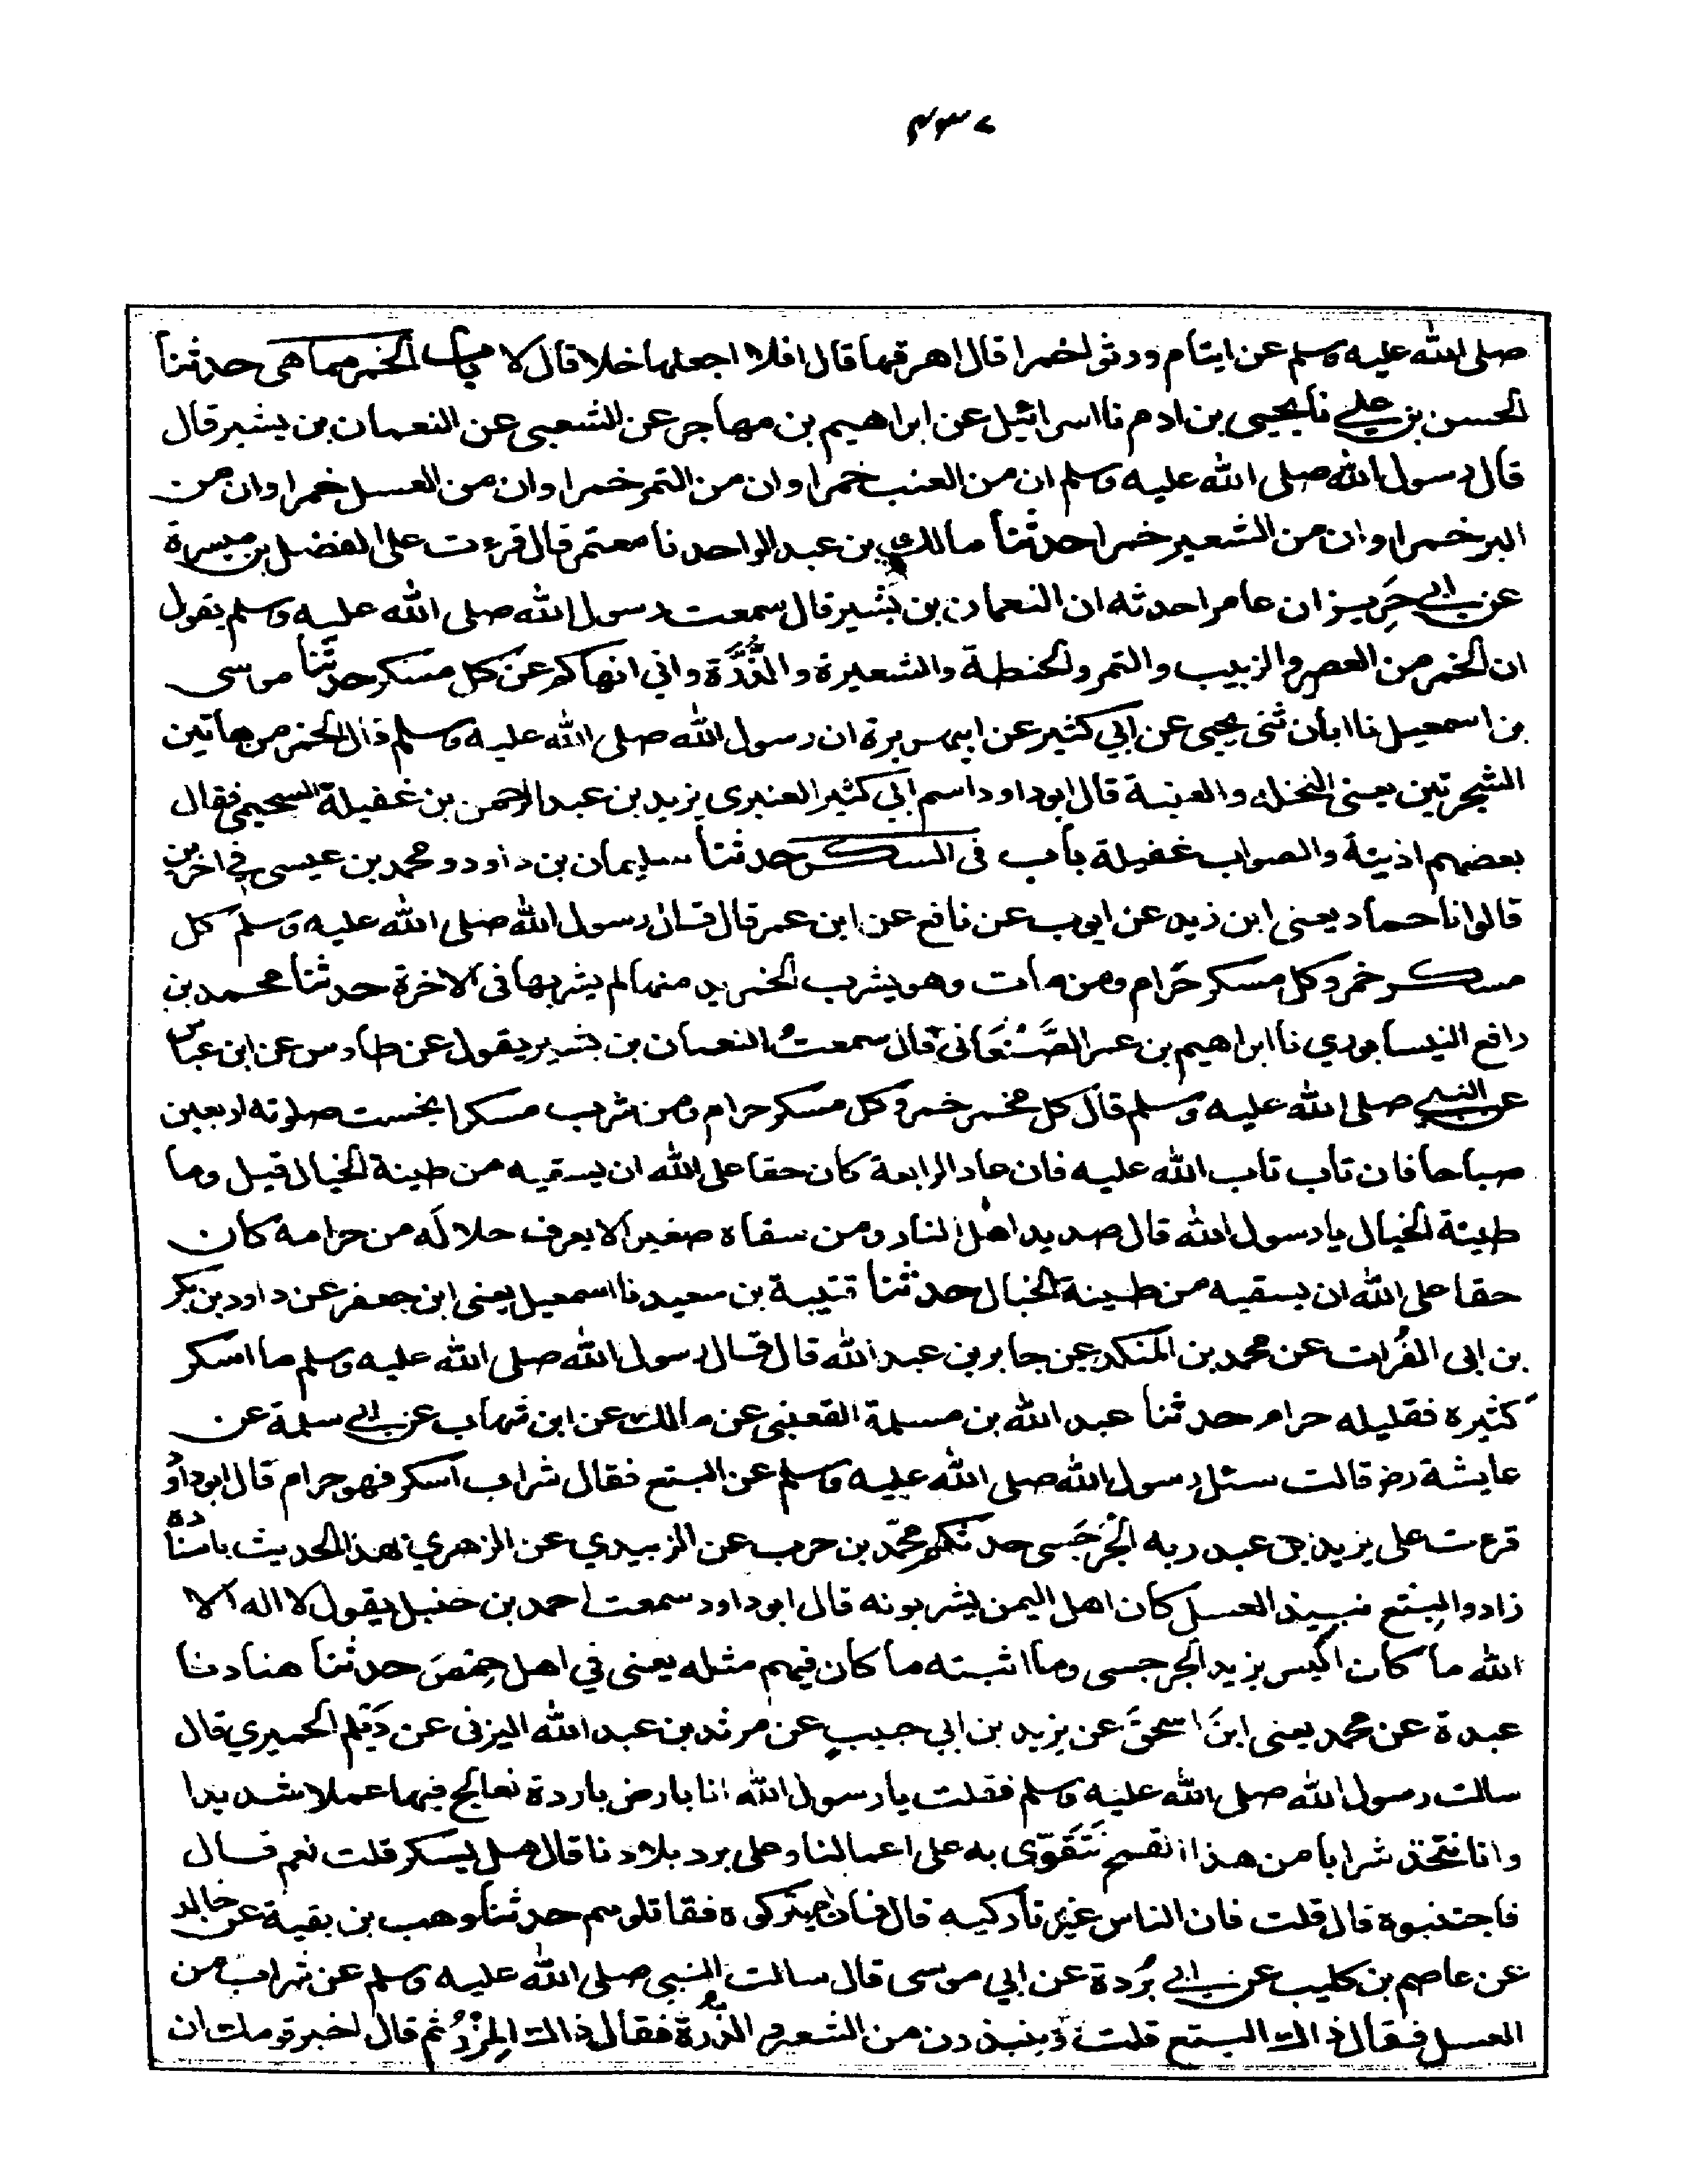 ۴۳۷
صلى الله عليه وسلم عن ايتام ورثوا خمرا قال اهرقها قال افلا اجعلها خلا قال لا باب الخمر مما هي حدثنا
الحسن بن علي نا يحيى بن ادم نا اسرائيل عن ابراهيم بن مهاجر عن الشعبي عن النعمان بن بشير قال
قال رسول الله صلى الله عليه وسلم ان من العنب خمرا وان من التمر خمرا وان من العسل خمرا وان من
البر خمرا وان من الشعير خمرا حدثنا مالك بن عبد الواحد نا معتمر قال قرءت على الفضل بن ميسرة
عن ابي حَرِيز ان عامرا حدثه ان النعمان بن بشير قال سمعت رسول الله صلى الله عليه وسلم يقول
ان الخمر من العصير والزبيب والتمر والحنطة والشعيرة والذُّرَّة واني انهاكم عن كل مسكر حدثنا موسى
بن اسمعيل نا ابان ثنى يحيى عن ابي كثير عن ابي هريرة ان رسول الله صلى الله عليه وسلم قال الخمر من هاتين
الشجرتين يعنى النخلة والعنبة قال ابو داود اسم ابي كثير العنبري يزيد بن عبد الرحمن بن غفيلة السحيمي فقال
بعضهم اذينة والصواب غفيلة باب فى السكر حدثنا سليمان بن داود ومحمد بن عيسى في اخرين
قالوا نا حماد يعنى ابن زيد عن ايوب عن نافع عن ابن عمر قال قال رسول الله صلى الله عليه وسلم كل
مسكر خمر وكل مسكر حرام ومن مات وهو يشرب الخمر يدمنها لم يشربها فى الاخرة حدثنا محمد بن
رافع النيسابوري نا ابراهيم بن عمر الصَّنْعَانى قال سمعتُ النعمان بن بشير يقول عن طاوس عن ابن عباس
عن النبي صلى الله عليه وسلم قال كل مخمر خمر وكل مسكر حرام ومن شرب مسكرا بخست صلوته اربعين
صباحا فان تاب تاب الله عليه فان عاد الرابعة كان حقا على الله ان يسقيه من طينة الخبال قيل وما
طينة الخبال يا رسول الله قال صديد اهل النار ومن سقاه صغيرا لا يعرف حلاله من حرامه كان
حقا على الله ان يسقيه من طينة الخبال حدثنا قتيبة بن سعيد نا اسمعيل يعنى ابن جعفر عن داود بن بكر
بن ابى الفُرات عن محمد بن المنكدر عن جابر بن عبد الله قال قال رسول الله صلى الله عليه وسلم ما اسكر
كثيره فقليله حرام حدثنا عبد الله بن مسلمة القعنبى عن مالك عن ابن شهاب عن ابي سلمة عن
عايشة رض قالت سئل رسول الله صلى الله عليه وسلم عن البتع فقال شراب اسكر فهو حرام قال ابو داود
قرءت على يزيد بن عبد ربه الجُرجَسى حدثكم محمّد بن حرب عن الزبيدي عن الزهري بهذا الحديث باسناده
زاد والبتع نبيذ العسل كان اهل اليمن يشربونه قال ابو داود سمعت احمد بن حنبل يقول لا اله الا
الله ما كان اكيس يزيد الجرجسى وما اثبته ما كان فيهم مثله يعنى في اهل حِمْصَ حدثنا هناد نا
عبدة عن محمد يعنى ابنَ اسحقَ عن يزيد بن ابي حبيبٍ عن مرثد بن عبد الله اليزنى عن دَيلم الحميري قال
سالت رسول الله صلى الله عليه وسلم فقلت يا رسول الله انا بارض باردة نعالج فيها عملا شديدا
وانا نتخذ شرابا من هذا القمح نَتَقَوّى به على اعمالنا وعلى برد بلادنا قال هل يسكر قلت نعم قال
فاجتنبوه قال قلت فان الناس غير تاركيه قال فان لم يتركوه فقاتلوهم حدثنا وهب بن بقية عن خالد
عن عاصم بن كليب عن ابي بُردة عن ابي موسى قال سالت النبي صلى الله عليه وسلم عن شراب من
العسل فقال ذاك البتع قلت وينبذون من الشعير والذُّرة فقال ذاك المِزْرُ ثم قال اخبر قومك ان